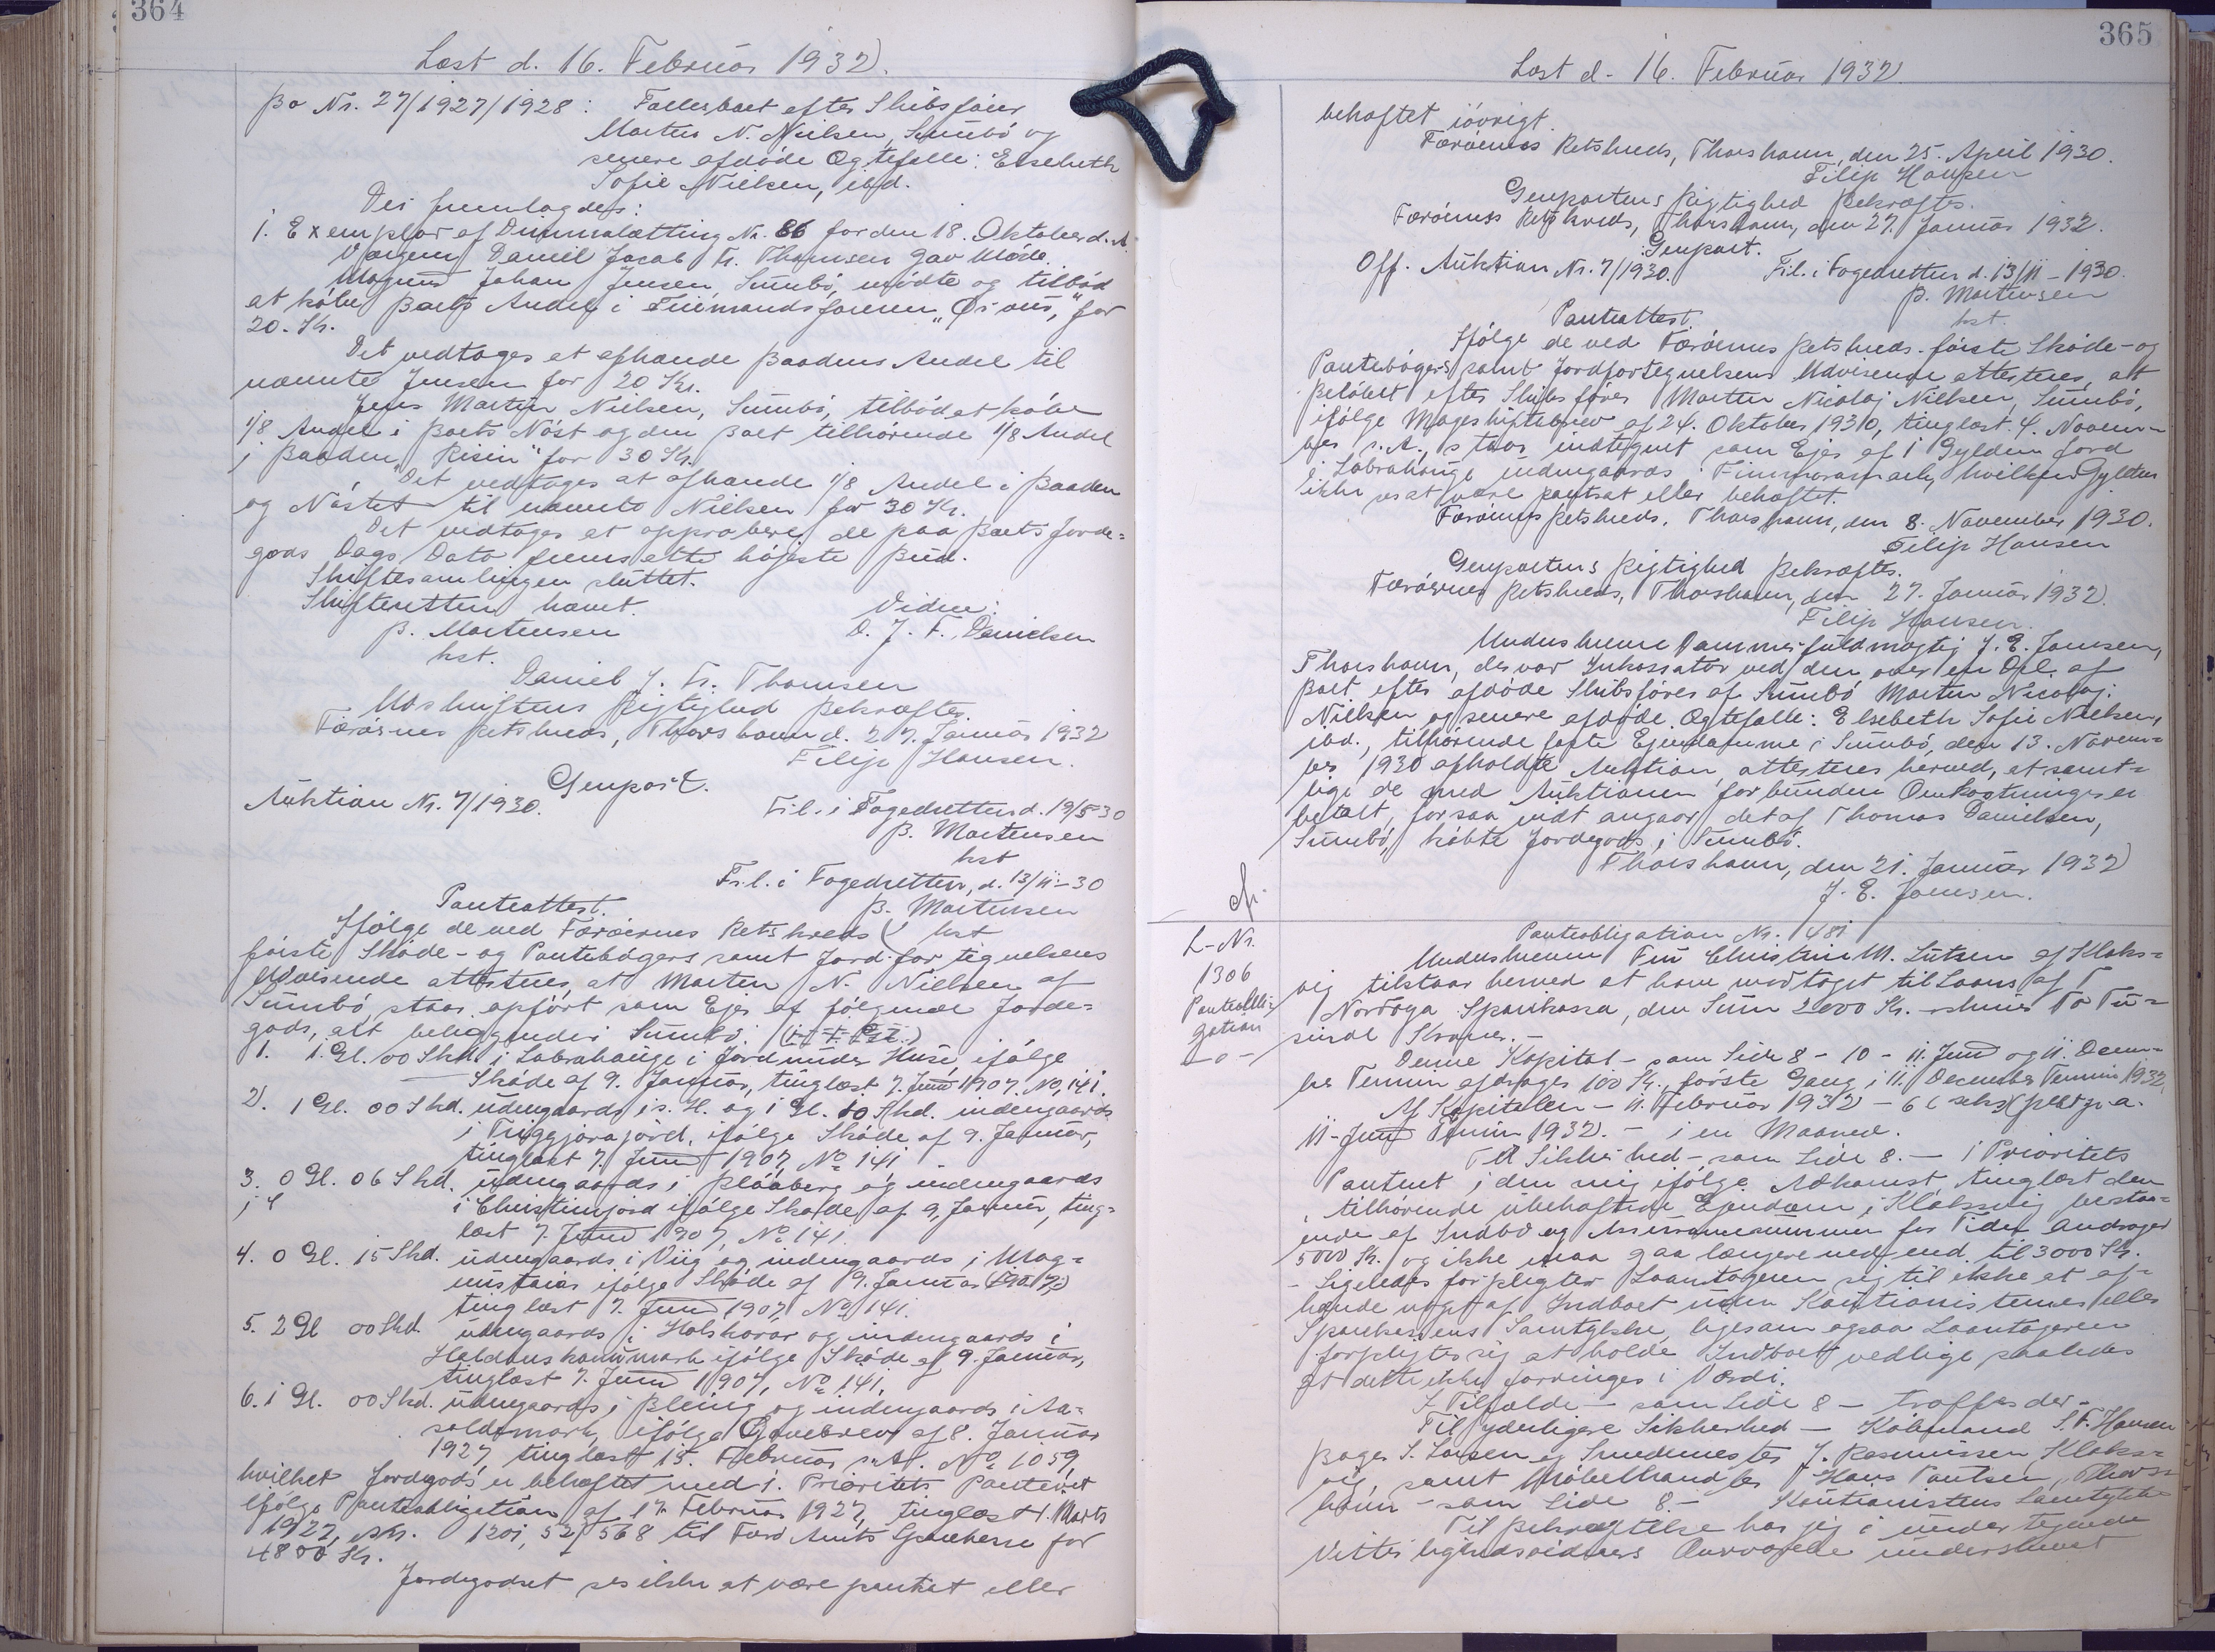 364
Læst d. 16. Februar 1932.
Bo Nr. 27/1927/1928: Fællesboet efter Skibsfører
Morten N. Nielsen, Sumbö og
senere afdöde Ægtefælle: Elsebeth
Sofie Nielsen, ibd.
Der fremlagdes:
1. Exemplar af Dimmalætting Nr. 86 for den 18. Oktober d. A.
Værgen Daniel Jacob Fr. Thomsen gav Möde.
Magnus Johan Jensen, Sumbö, mödte og tilböd
at köbe Boets Andel i Tiimandsfareren "Örvur" for
20. Kr.
Det vedtoges at afhænde Baadens Andel til
nævnte Jensen for 20 Kr.
Jens Martin Nielsen, Sumbö, tilböd at köbe
1/8 Andel i Boets Nöst og den Boet tilhörende 1/8 Andel
i Baaden "Resin" for 30 Kr.
Det vedtoges at afhænde 1/8 Andel i Baaden
og Nöstet til nævnte Nielsen for 30 Kr.
Det vedtoges at approbere de paa Boets Jorde-
gods Dags Dato fremsatte höjeste Bud.
Skiftesamlingen sluttet.
Skifteretten hævet. Vidne:
B. Mortensen D. J. F. Danielsen
kst.
Daniel J. Fr. Thomsen
Udskriftens Rigtighed Bekræftes.
Færöernes Retskreds, Thorshavn d. 27. Januar 1932
Filip Hansen.
Genpart.
Auktion Nr. 7/1930. Frl. i Fogedretten d. 19/5 30
B. Mortensen
kst
Frl. i Fogedretten, d. 13/11-30
Panteattest. B. Mortensen
Ifölge de ved Færöernes Retskreds kst
förte Sköde- og Pantebögers samt Jordfortegnelsens
Udvisende attesteres, at Morten N. Nielsen af
Sumbö staar opfört som Ejer af fölgende Jorde-
gods, alt beliggende i Sumbö.
1. 1 Gl. 00 Skd. i Labrahauge i Jord under Huse, ifölge
Sköde af 9. Januar, tinglæst 7. Juni 1907. No, 141.
2. 1 Gl. 00 Skd. udengaards i s. H. og 1 Gl. 10 Skd. indengaards
i Triggjarajord, ifölge Sköde af 9. Januar,
tinglæst 7. Juni 1907, No 141
3. 0 Gl. 06 Skd. udengaards i Blääberg og indengaards
i Christinsjord ifölge Sköde af 9, Januar, ting-
læst 7. Juni 1907, No 141.
4. 0 Gl. 15 Skd. udengaards i Viig og indengaards i Mag-
nus ifölge Sköde af 9. Januar
tinglæst 7. Juni 1907, No 141.
5. 2 Gl 00 Skd. udengaards i Holshorar og indengaards i
Haldanskonumark ifölge Sköde af 9. Januar,
tinglæst 7. Juni 1907, No 141.
6. 1 Gl. 00 Skd. udengaards i Bleiig og indengaards i Aa-
soldsmark, ifölge Gavebrev af 8. Januar
1927, tinglæst 15. Februar s. A. No 1059,
hvilket Jordegods er behæftet med 1. Prioritets Panteret
ifölge Panteobligation af 17. Februar 1927, tinglæst 1. Marts
1927, 1201, 52, 568 til Færö Amts Sparekasse for
4800 Kr.
Jordegodset ses ikke at være pantsat eller
365
Læst d. 16. Februar 1932
behæftet iövrigt.
Færöernes Retskreds, Thorshavn, den 25. April 1930.
Filip Hansen
Genpartens Rigtighed Bekræftes.
Færöernes Retskreds, Thorshavn, den 27. Januar 1932.
Genpart.
Off. Auktion Nr. 7/1930. Frl. i Fogedretten d. 13/11-1930.
B. Mortensen
Panteattest. kst.
Ifölge de ved Færöernes Retskreds förte Sköde- og
Pantebögers samt Jordfortegnelsens Udvisende attesteres, at
efter Skibsförer Morten Nicolaj Nielsen, Sumbö,
ifölge Mageskiftebrev af 24. Oktober 1930, tinglæst 4. Novem-
ber s. A., staar indtegnet som Ejer af 1 Gylden Jord
i Labrahauge indengaards i hvilken Gylden
ikke ses at være pantsat eller behæftet.
Færöernes Retskreds, Thorshavn, den 8. November 1930.
Filip Hansen
Genpartens Rigtighed Bekræftes.
Færöernes Retskreds, Thorshavn, den 27. Januar 1932.
Filip Hansen.
Undertskrevne Dommerfuldmægtig J. E. Joensen,
Thorshavn, der var Inkassator ved den over en Del af
Boet efter afdöde Skibsförer af Sumbö Morten Nicolaj
Nielsen og senere afdöde Ægtefælle: Elsebeth Sofie Nielsen,
ibd., tilhörende faste Ejendomme i Sumbö, den 13. Novem-
ber 1930 afholdte Auktion, attesteres herved, at samt-
lige de med Auktionen forbundne Omkostninger er
betalt, forsaa vidt angaar det af Thomas Danielsen,
Sumbö, köbte Jordegods i Sumbö.
Thorshavn, den 21. Januar 1932
J. E. Joensen.
L-Nr.
1306
Panteobli-
gation
-o-
Panteobligation Nr. 481
Underskrevne Fru Christine M. Lützen af Klaks-
vig tilstaar herved at have modtaget til Laans af
Nordoya Sparikassa, den Sum 2000 Kr. skriver To Tu-
sinde Kroner.-
Denne Kapital - som Side 8 - 10 - 11. Juni og 11. Decem-
ber Termin afdrages 100 Kr., förste Gang i 11. December Termin 1932.
Af Kapitalen - 11. Februar 1932 - 6 (seks) pCt p. a.
11-Juni Termin 1932. - i en Maaned.
Til Sikkerhed - som Side 8. - 1 Prioritets
Panteret i den mig ifölge Adkomst tinglæst den
tilhörende ubehæftede Ejendom i Klaksvig bestaa-
ende af Indbo og Assurancesummen for Tiden andrager
5000 Kr. og ikke maa gaa længere ned end til 3000 Kr.
- Ligeledes forpligter Laantageren sig til ikke at af-
hænde noget af Indboet uden Kautionisternes eller
Sparekassens Samtykke, ligesom ogsaa Laantageren
forpligter sig at holde Indboet vedlige saaledes
at dette ikke forringes i Værdi.
I Tilfælde - som Side 8 - træffes der -
Til yderligere Sikkerhed - Köbmand S. F. Hansen
Bager S. Larsen og Smedemester J. Rasmussen Klaks-
vig, samt Möbelhandler Hans Poulsen, Thors-
havn - som Side 8. - Kautionistens Samtykke
Til Bekræftelse har jeg i undertegnede
Vitterlighedsvidners Overværelse underskrevet